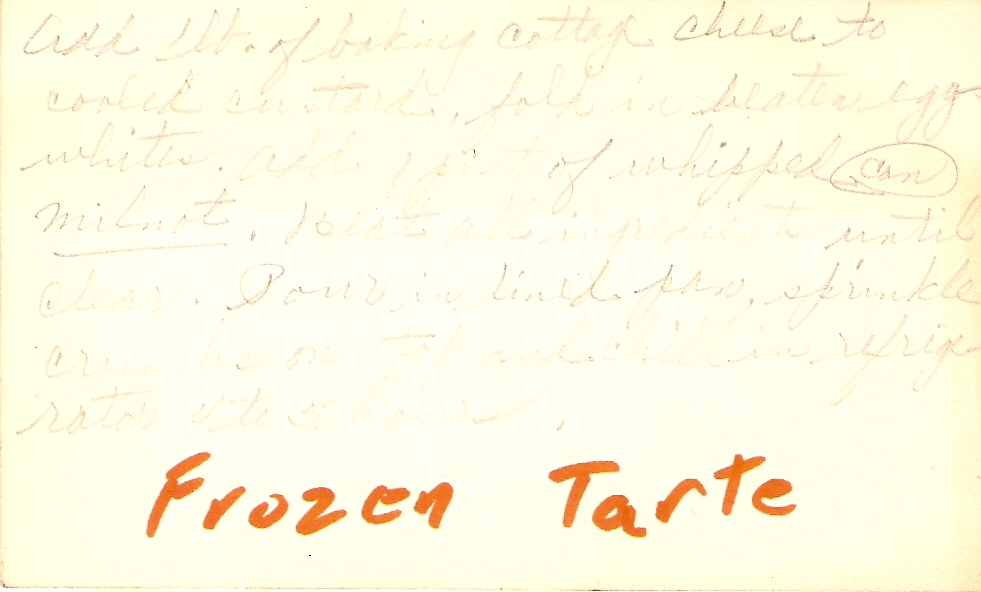 Add 1 lb. of baking cottage cheese to
cooled custard, fold in beaten egg
whites. Add 1 pint of whipped can
milnot. Beat all ingredients until
clear. Pour in lined pan, sprinkle
crumbs on top and chill in refrige
rator 4 to 5 hours.
Frozen Tarte